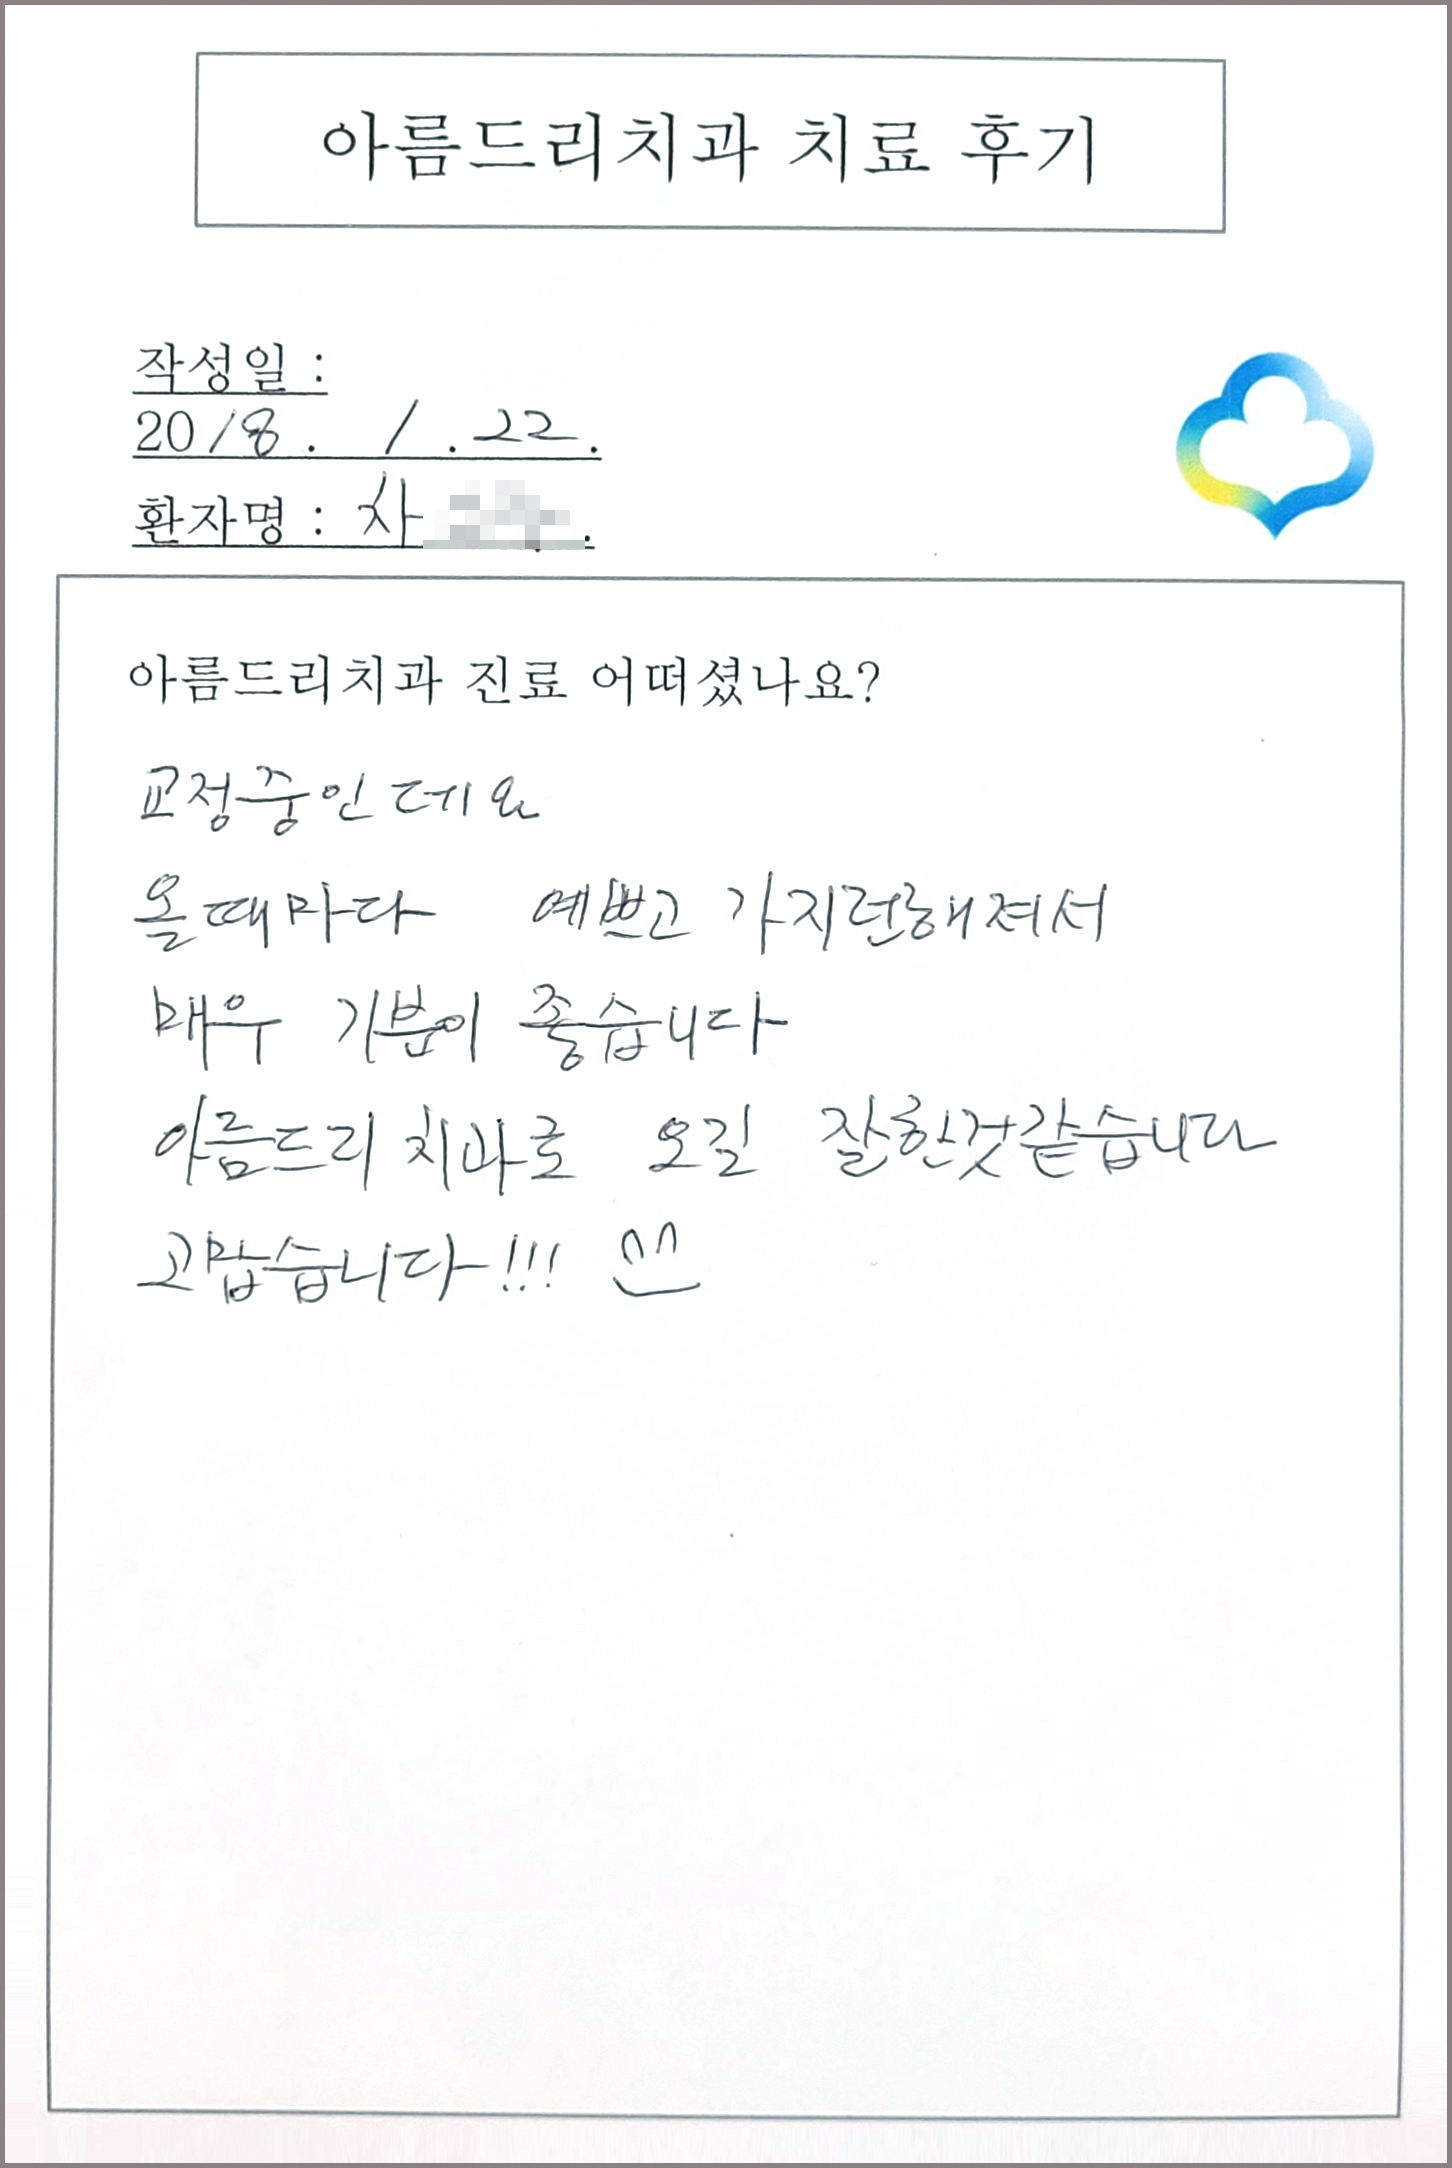 아름드리치과 치료 후기
작성일 :
2018. 1 .22.
환자명 : 차
아름드리치과 진료 어떠셨나요?
교정중인데요
올때마다 예쁘고 가지런해져서
매우 기분이 좋습니다
아름드리 치과로 오길 잘한것같습니다
고맙습니다!!!